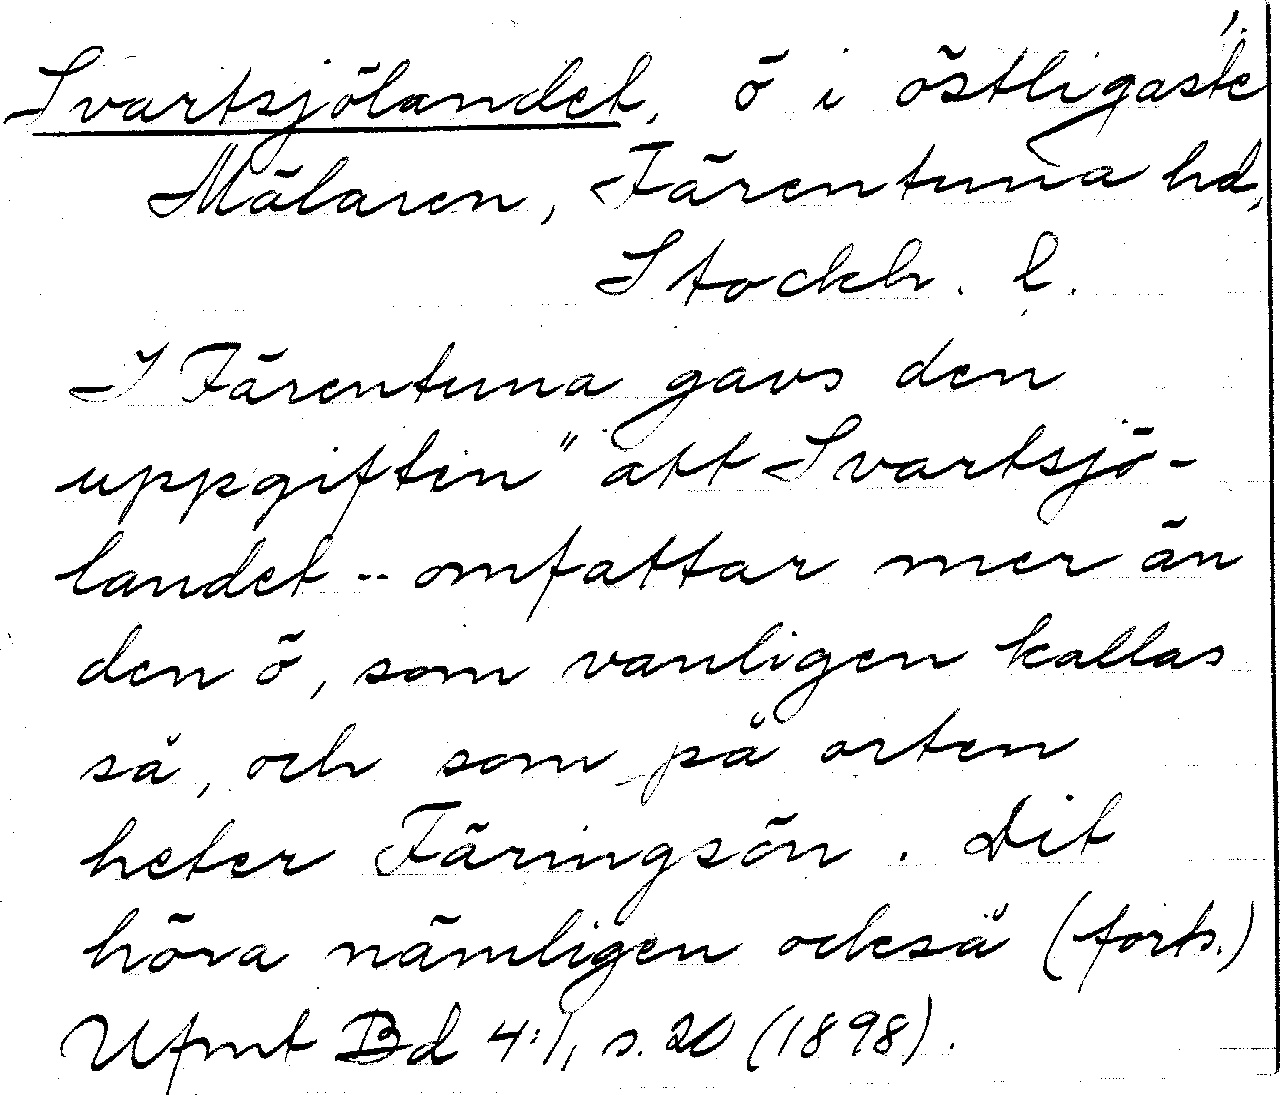 Svartsjölandet, ö i östligaste
Mälaren, Färentuna hd,
Stockh. l.
I Färentuna gavs den
uppgiften "att Svartsjö-
landet -- omfattar mer än
den ö, som vanligen kallas
så, och som på orten
heter Färingsön. Dit
höra nämligen också (forts.)
Ufmt Bd 4:1, s. 20 (1898).